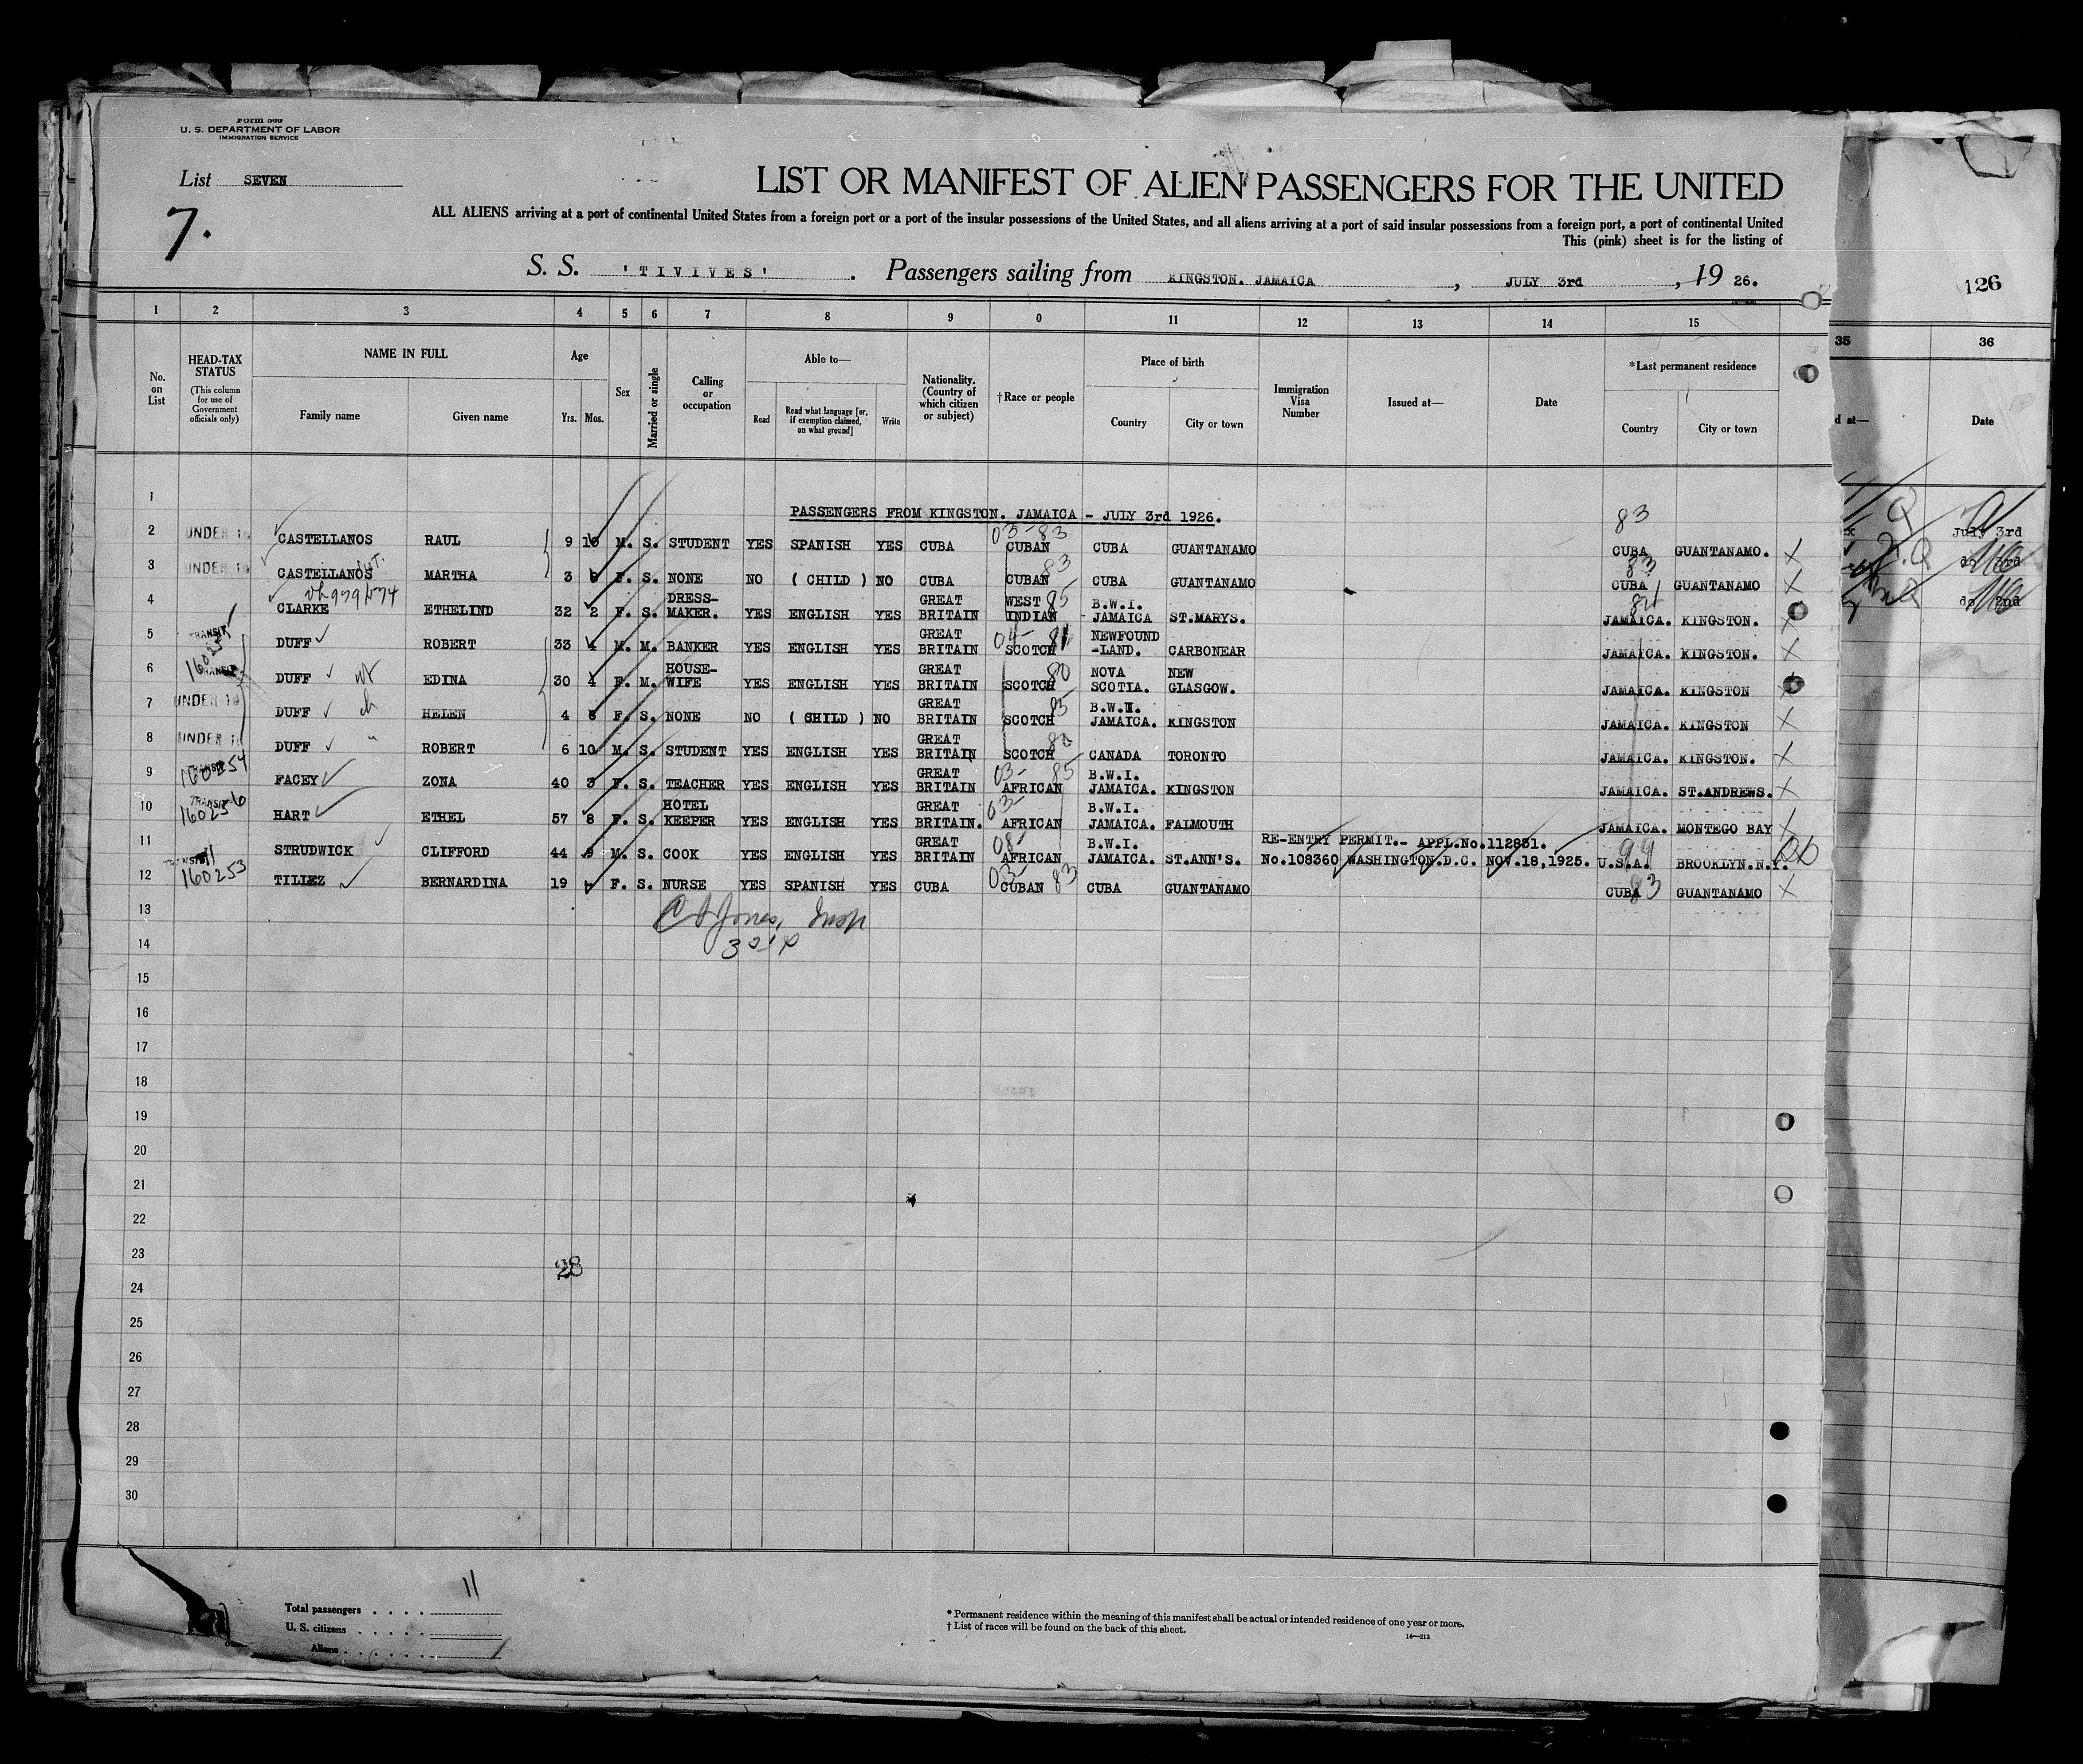 Form 500
U. S. DEPARTMENT OF LABOR
IMMIGRATION SERVICE
List SEVEN
7.
LIST OR MANIFEST OF ALIEN PASSENGERS FOR THE UNITED
ALL ALIENS arriving at a port of continental United States from a foreign port or a port of the insular possessions of the United States, and all aliens arriving at a port of said insular possessions from a foreign port, a port of continental United
This (pink) sheet is for the listing of
S. S. 'TIVIVES'. Passengers sailing from KINGSTON. JAMAICA, JULY 3rd, 1926.
126
1 2 3 4 5 6 7 8 9 0 11 12 13 14 15 35 36
No. on List
HEAD-TAX STATUS (This column for use of Government officials only)
NAME IN FULL
Family name Given name
Age
Yrs. Mos.
Sex
Married or single
Calling or occupation
Able to—
Read Read what language [or, if exemption claimed, on what ground] Write
Nationality. (Country of which citizen or subject)
†Race or people
Place of birth
Country City or town
Immigration Visa Number
Issued at—
Date
*Last permanent residence
Country City or town
d at— Date
1
PASSENGERS FROM KINGSTON. JAMAICA - JULY 3rd 1926.
83
2 UNDER 16 CASTELLANOS RAUL 9 10 M. S. STUDENT YES SPANISH YES CUBA 03-83 CUBAN CUBA GUANTANAMO CUBA GUANTANAMO. X July 3rd
3 UNDER 16 CASTELLANOS MARTHA 3 F. S. NONE NO (CHILD) NO CUBA CUBAN 83 CUBA GUANTANAMO 83 CUBA GUANTANAMO X do 3rd
4 CLARKE ETHELIND 32 2 F. S. DRESS-MAKER. YES ENGLISH YES GREAT BRITAIN WEST INDIAN 85 B.W.I. JAMAICA ST.MARYS. JAMAICA. KINGSTON. X do 2nd
5 TRANSIT DUFF ROBERT 33 4 M. M. BANKER YES ENGLISH YES GREAT BRITAIN 04- SCOTCH NEWFOUND-LAND. CARBONEAR JAMAICA. KINGSTON. X
6 TRANSIT DUFF EDINA 30 4 F. M. HOUSE-WIFE YES ENGLISH YES GREAT BRITAIN SCOTCH 80 NOVA SCOTIA. NEW GLASGOW. JAMAICA. KINGSTON X
7 UNDER 16 DUFF HELEN 4 F. S. NONE NO (CHILD) NO GREAT BRITAIN SCOTCH 85 B.W.I. JAMAICA. KINGSTON JAMAICA. KINGSTON X
8 UNDER 16 DUFF " ROBERT 6 10 M. S. STUDENT YES ENGLISH YES GREAT BRITAIN SCOTCH 80 CANADA TORONTO JAMAICA. KINGSTON. X
9 TRANSIT 160254 FACEY ZONA 40 3 F. S. TEACHER YES ENGLISH YES GREAT BRITAIN 03- 85 AFRICAN B.W.I. JAMAICA. KINGSTON JAMAICA. ST.ANDREWS. X
10 TRANSIT 160256 HART ETHEL 57 8 F. S. HOTEL KEEPER YES ENGLISH YES GREAT BRITAIN. 03- AFRICAN B.W.I. JAMAICA. FALMOUTH JAMAICA. MONTEGO BAY X
11 STRUDWICK CLIFFORD 44 9 M. S. COOK YES ENGLISH YES GREAT BRITAIN 08- AFRICAN B.W.I. JAMAICA. ST.ANN'S. RE-ENTRY PERMIT.- APPL.No.112851. No.108360 WASHINGTON.D.C. NOV.18,1925. 99 U.S.A. BROOKLYN.N.Y.
12 TRANSIT 160253 TILIEZ BERNARDINA 19 F. S. NURSE YES SPANISH YES CUBA 03- 83 CUBAN CUBA GUANTANAMO CUBA 83 GUANTANAMO X
13
14
15
16
17
18
19
20
21
22
23
28
24
25
26
27
28
29
30
11
Total passengers
U. S. citizens
Aliens
* Permanent residence within the meaning of this manifest shall be actual or intended residence of one year or more.
† List of races will be found on the back of this sheet.
14—213